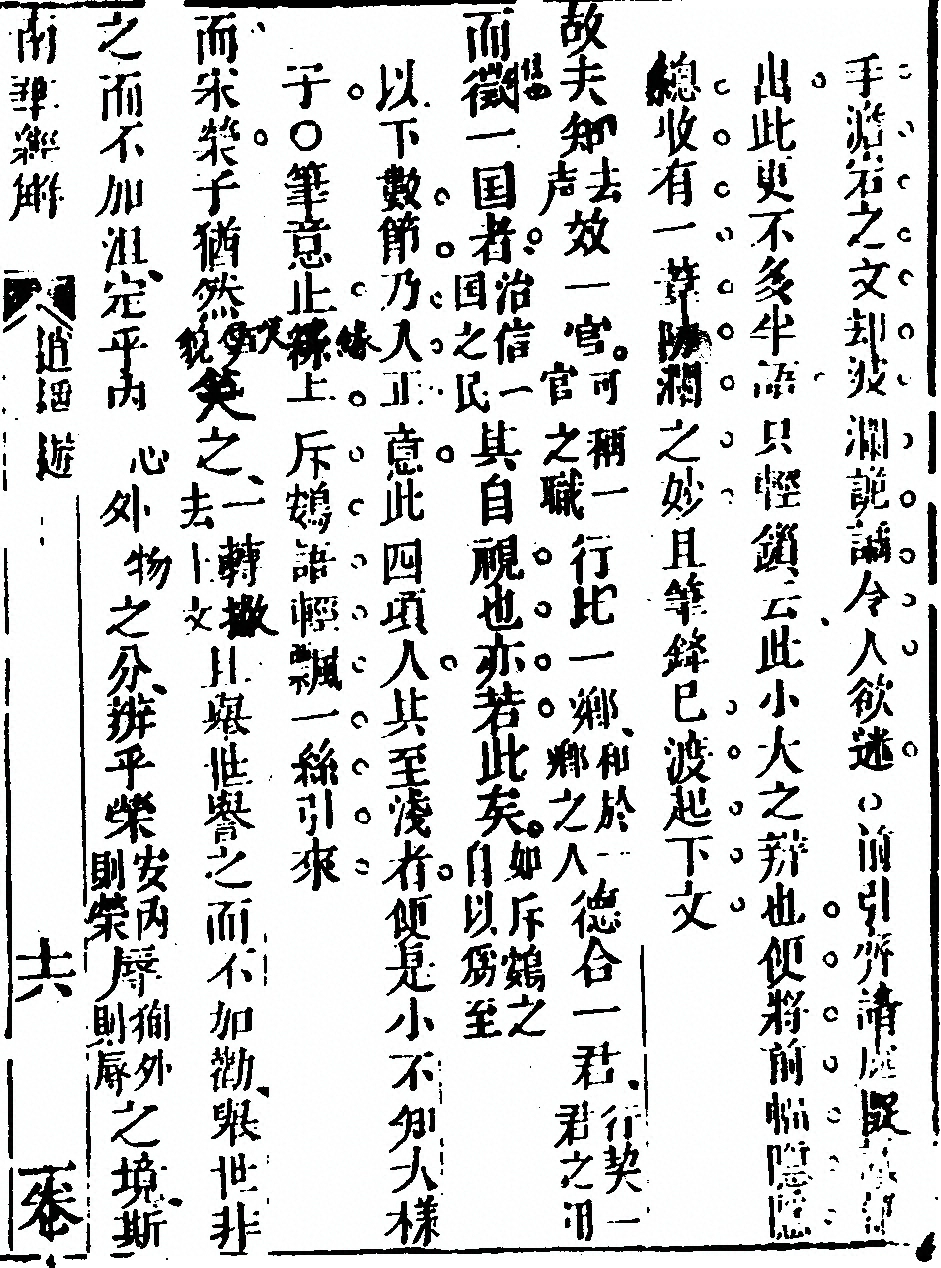 手澹宕之文却波瀾詭譎令人欲迷○前引齊諧
出此更不多半語只輕鎖云此小大之辨也便將前幅隱隱
總收有一葦障瀾之妙且筆鋒已渡起下文
故夫知去声效一官可官稱一之職行比一鄉和於一鄉之人德合一君行契一君之
而徵信也一国者治信一国之民其自視也亦若此矣如斥鴳之自以爲至
以下數節乃入正意此四項人其至淺者便是小不知大樣
子○筆意止緣上斥鴳語輕飄一絲引來
而宋榮子猶然笑貌笑之一轉撇去上文且舉世譽之而不加勸舉世非
之而不加沮定乎內心外物之分辨乎榮安內則榮辱狥外則辱之境斯
南華經解
逍遙遊
十六
卷一